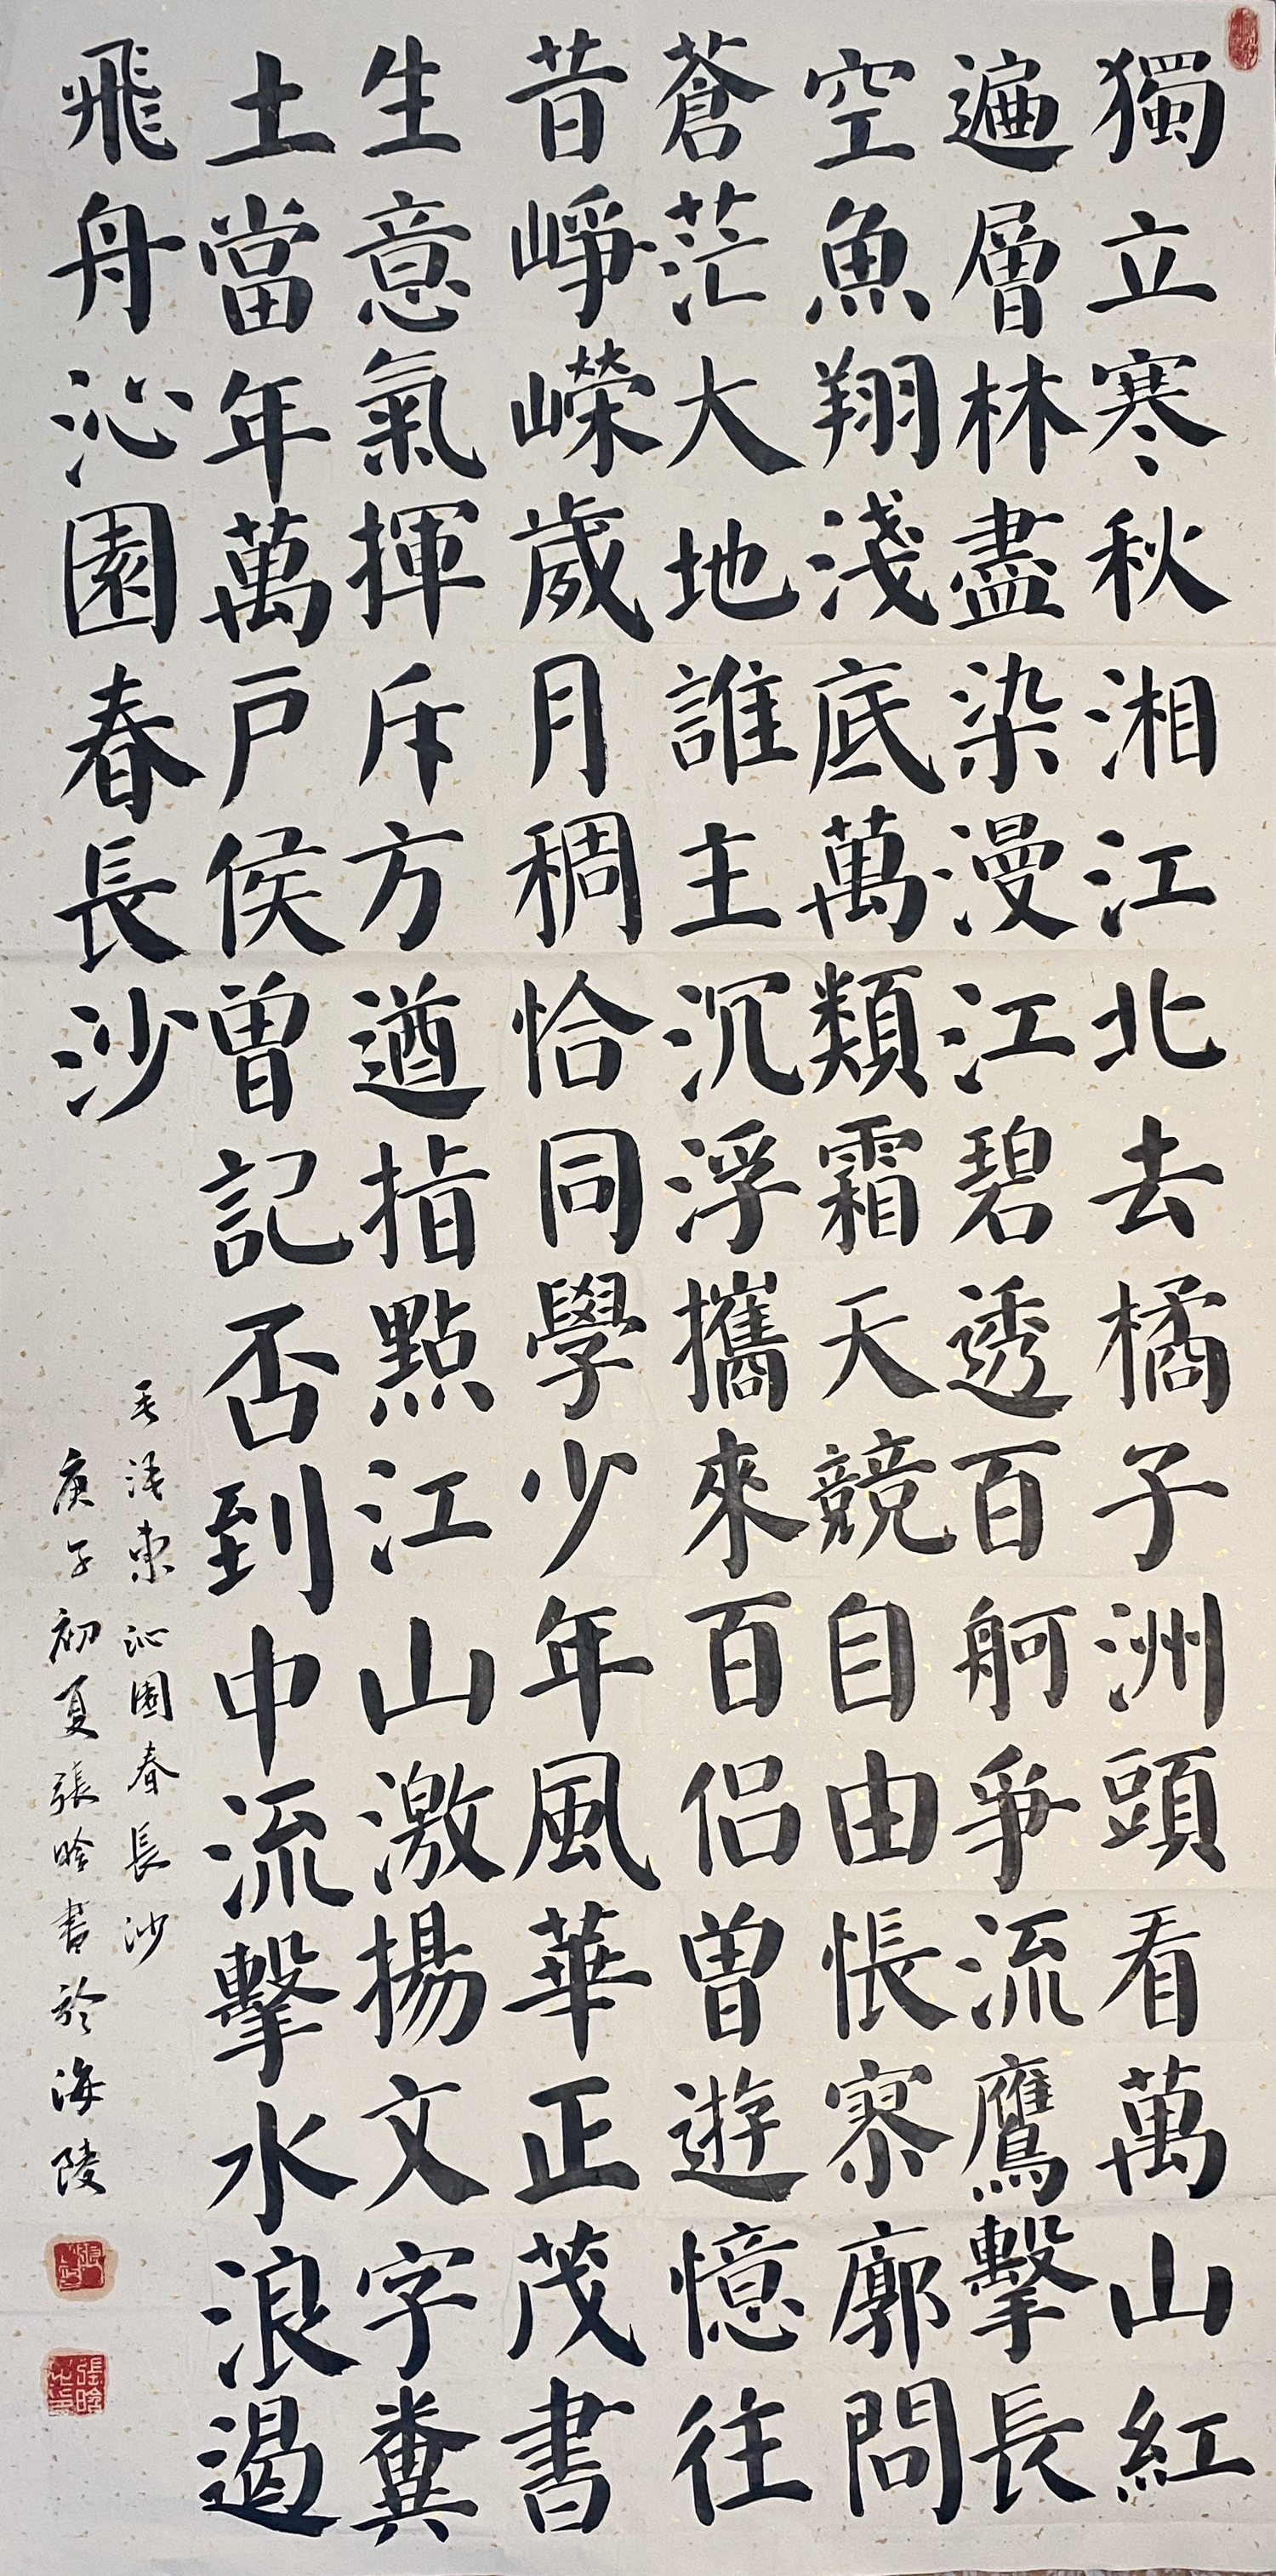 獨立寒秋湘江北去橘子洲頭看萬山紅
遍層林盡染漫江碧透百舸爭流鷹擊長
空魚翔淺底萬類霜天競自由悵寥廓問
蒼茫大地誰主沉浮攜來百侶曾遊憶往
昔崢嶸歲月稠恰同學少年風華正茂書
生意氣揮斥方遒指點江山激揚文字糞
土當年萬戶侯曾記否到中流擊水浪遏
飛舟沁園春長沙
毛澤東沁園春長沙
庚子初夏張晗書於海陵